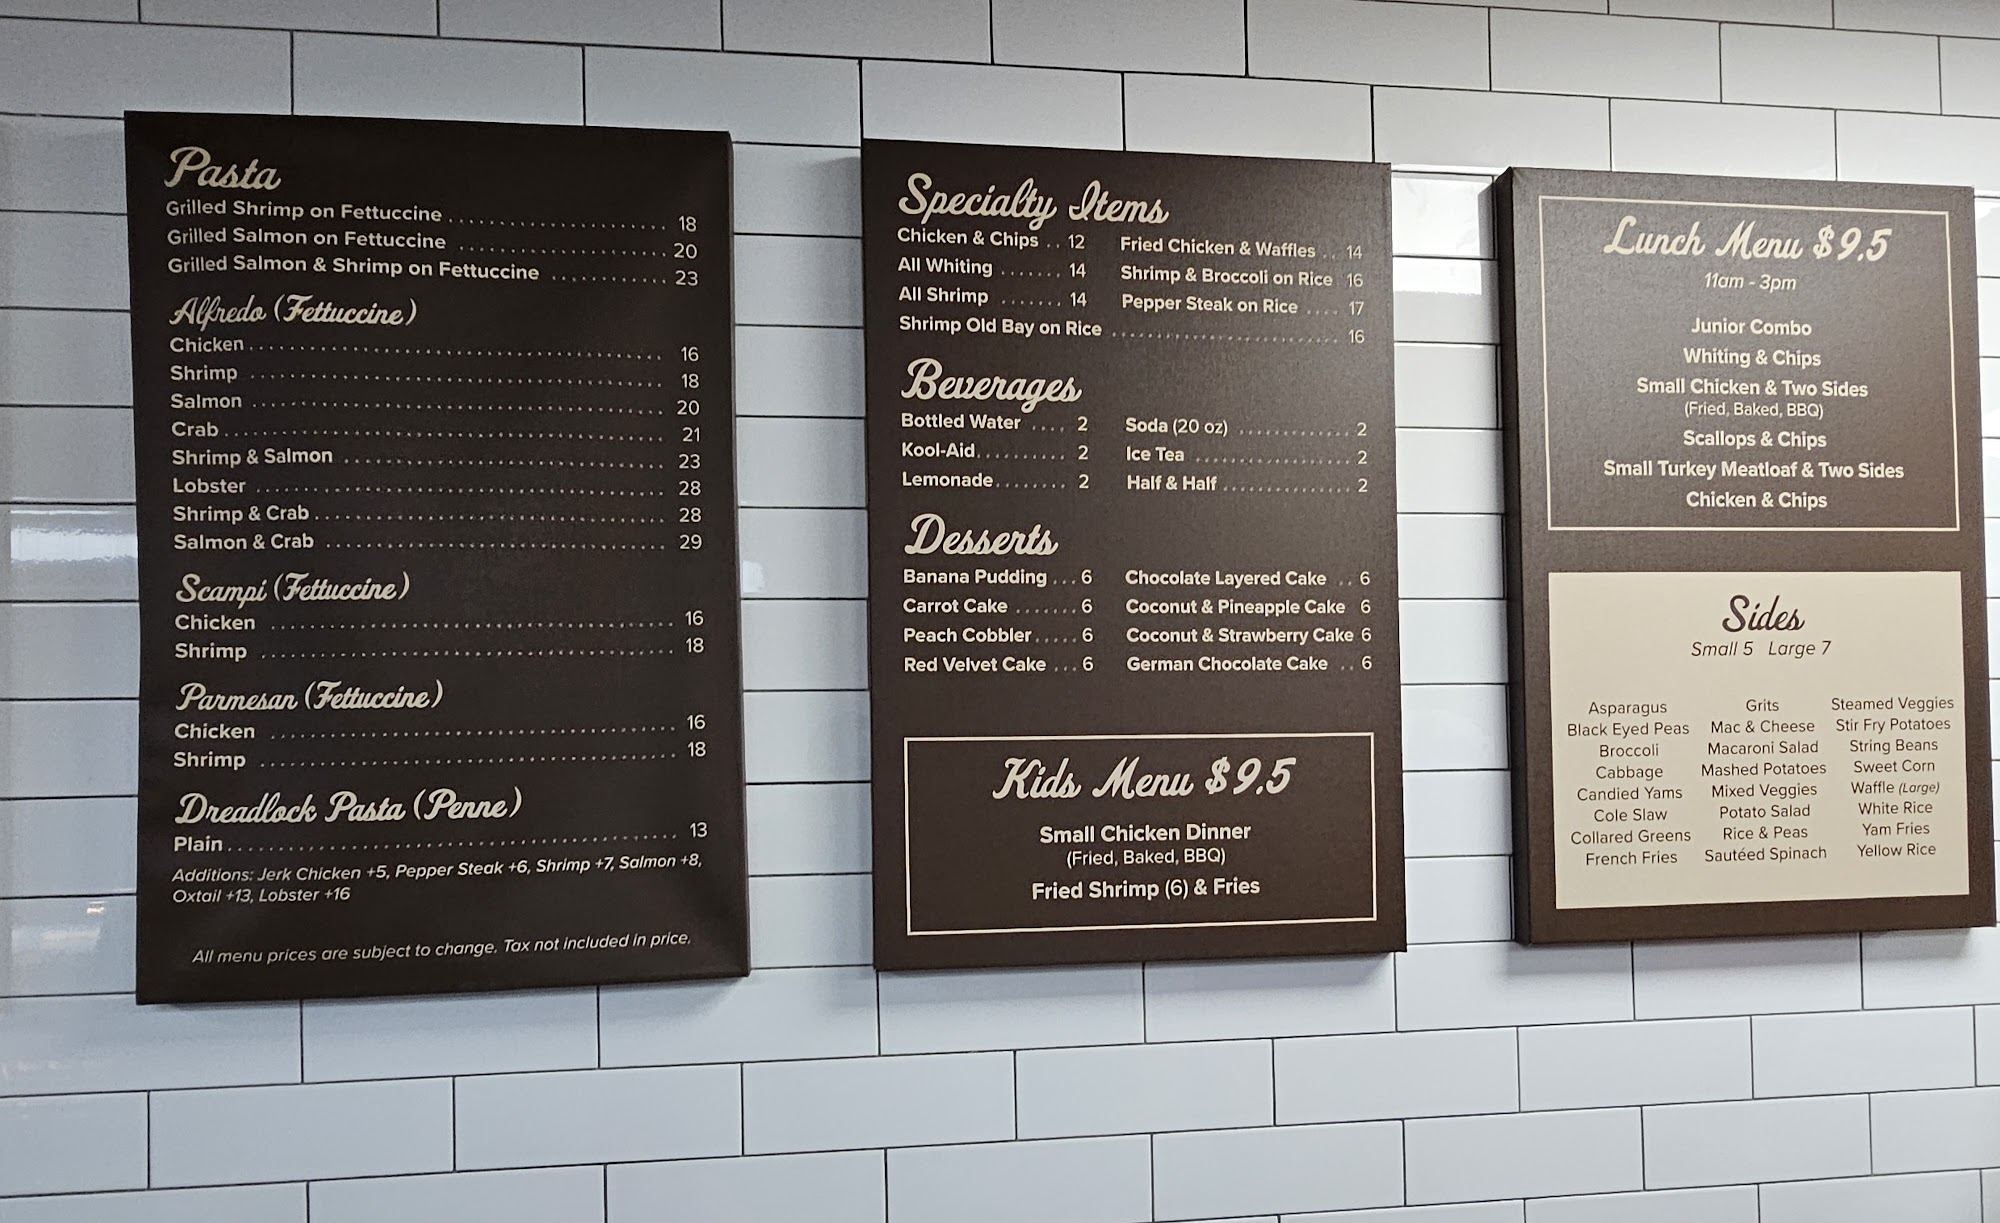 Pasta
Grilled Shrimp on Fettuccine 18
Grilled Salmon on Fettuccine 20
Grilled Salmon & Shrimp on Fettuccine 23
Alfredo (Fettuccine)
Chicken 16
Shrimp 18
Salmon 20
Crab 21
Shrimp & Salmon 23
Lobster 28
Shrimp & Crab 28
Salmon & Crab 29
Scampi (Fettuccine)
Chicken 16
Shrimp 18
Parmesan (Fettuccine)
Chicken 16
Shrimp 18
Dreadlock Pasta (Penne)
Plain 13
Additions: Jerk Chicken +5, Pepper Steak +6, Shrimp +7, Salmon +8,
Oxtail +13, Lobster +16
All menu prices are subject to change. Tax not included in price.
Specialty Items
Chicken & Chips 12 Fried Chicken & Waffles 14
All Whiting 14 Shrimp & Broccoli on Rice 16
All Shrimp 14 Pepper Steak on Rice 17
Shrimp Old Bay on Rice 16
Beverages
Bottled Water 2 Soda (20 oz) 2
Kool-Aid 2 Ice Tea 2
Lemonade 2 Half & Half 2
Desserts
Banana Pudding 6 Chocolate Layered Cake 6
Carrot Cake 6 Coconut & Pineapple Cake 6
Peach Cobbler 6 Coconut & Strawberry Cake 6
Red Velvet Cake 6 German Chocolate Cake 6
Kids Menu $9.5
Small Chicken Dinner
(Fried, Baked, BBQ)
Fried Shrimp (6) & Fries
Lunch Menu $9.5
11am - 3pm
Junior Combo
Whiting & Chips
Small Chicken & Two Sides
(Fried, Baked, BBQ)
Scallops & Chips
Small Turkey Meatloaf & Two Sides
Chicken & Chips
Sides
Small 5 Large 7
Asparagus
Black Eyed Peas
Broccoli
Cabbage
Candied Yams
Cole Slaw
Collared Greens
French Fries
Grits
Mac & Cheese
Macaroni Salad
Mashed Potatoes
Mixed Veggies
Potato Salad
Rice & Peas
Sautéed Spinach
Steamed Veggies
Stir Fry Potatoes
String Beans
Sweet Corn
Waffle (Large)
White Rice
Yam Fries
Yellow Rice